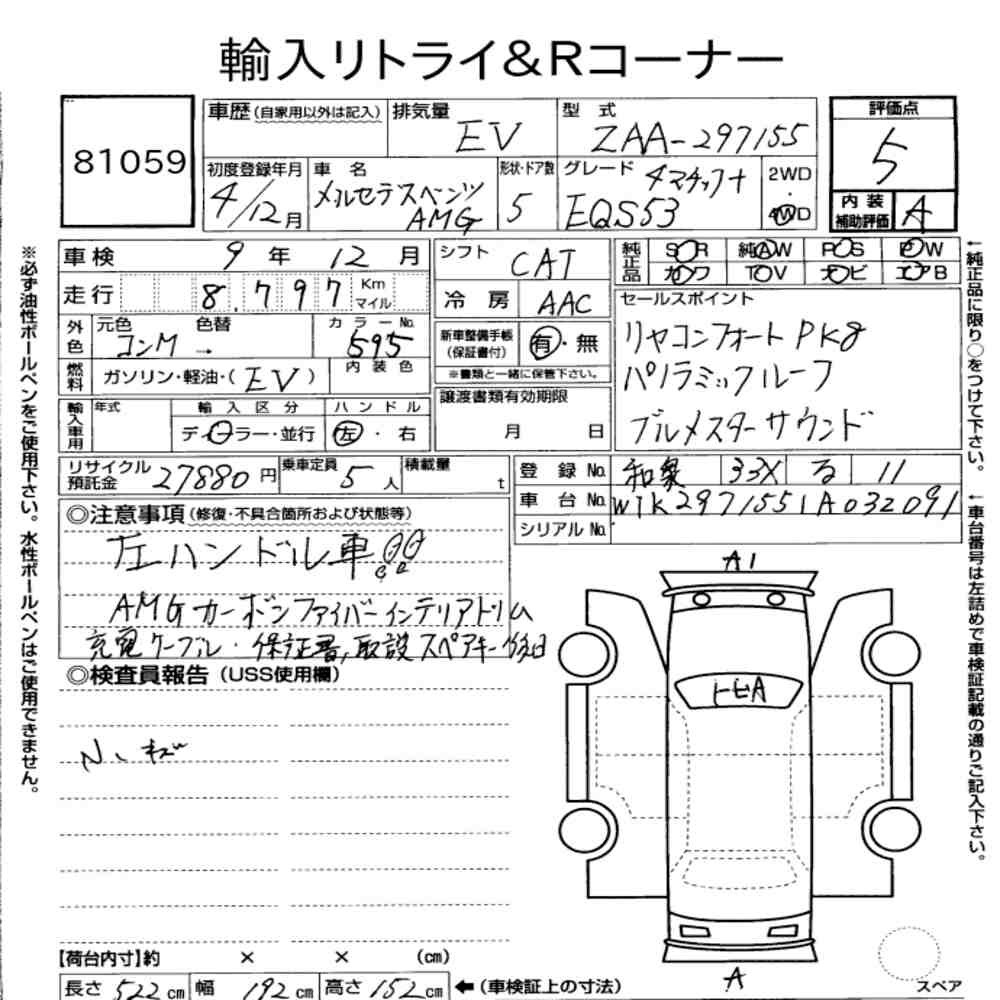 輸入リトライ&Rコーナー
81059
車歴 (自家用以外は記入) 排気量 EV 型 式 ZAA-297155
評価点 5
初度登録年月 4/12月 車 名 メルセデスベンツ AMG 形状・ドア数 5 グレード 4マチック+ EQS53 2WD・4WD
内装補助評価 A
車検 9 年 12 月 シフト CAT
純正品 SR 純AW PS PW
カワ TV ナビ エアB
走行 8,797 Km マイル 冷房 AAC
セールスポイント
外色 元色 コンM 色替 → カラーNo. 595
新車整備手帳 (保証書付) 有・無
リヤコンフォートPKg
燃料 ガソリン・軽油・( EV ) 内装色
※書類と一緒に保管下さい。
パノラミックルーフ
輸入車用 年式 輸入区分 ハンドル
ディーラー・並行 左・右
譲渡書類有効期限
月 日
ブルメスターサウンド
リサイクル預託金 27880円 乗車定員 5人 積載量 t
登録No. 和泉 33X る 11
車台No. W1K2971551A032091
シリアルNo.
◎注意事項 (修復・不具合箇所および状態等)
左ハンドル車!!
AMGカーボンファイバーインテリアトリム
充電ケーブル・保証書,取説スペアキー後日
◎検査員報告 (USS使用欄)
A1
トビA
A
スペア
【荷台内寸】約 × × (cm)
長さ 522cm 幅 192cm 高さ 152cm ←(車検証上の寸法)
※必ず油性ボールペンをご使用下さい。水性ボールペンはご使用できません。
←純正品に限り○をつけて下さい。
←車台番号は左詰めで車検証記載の通りご記入下さい。